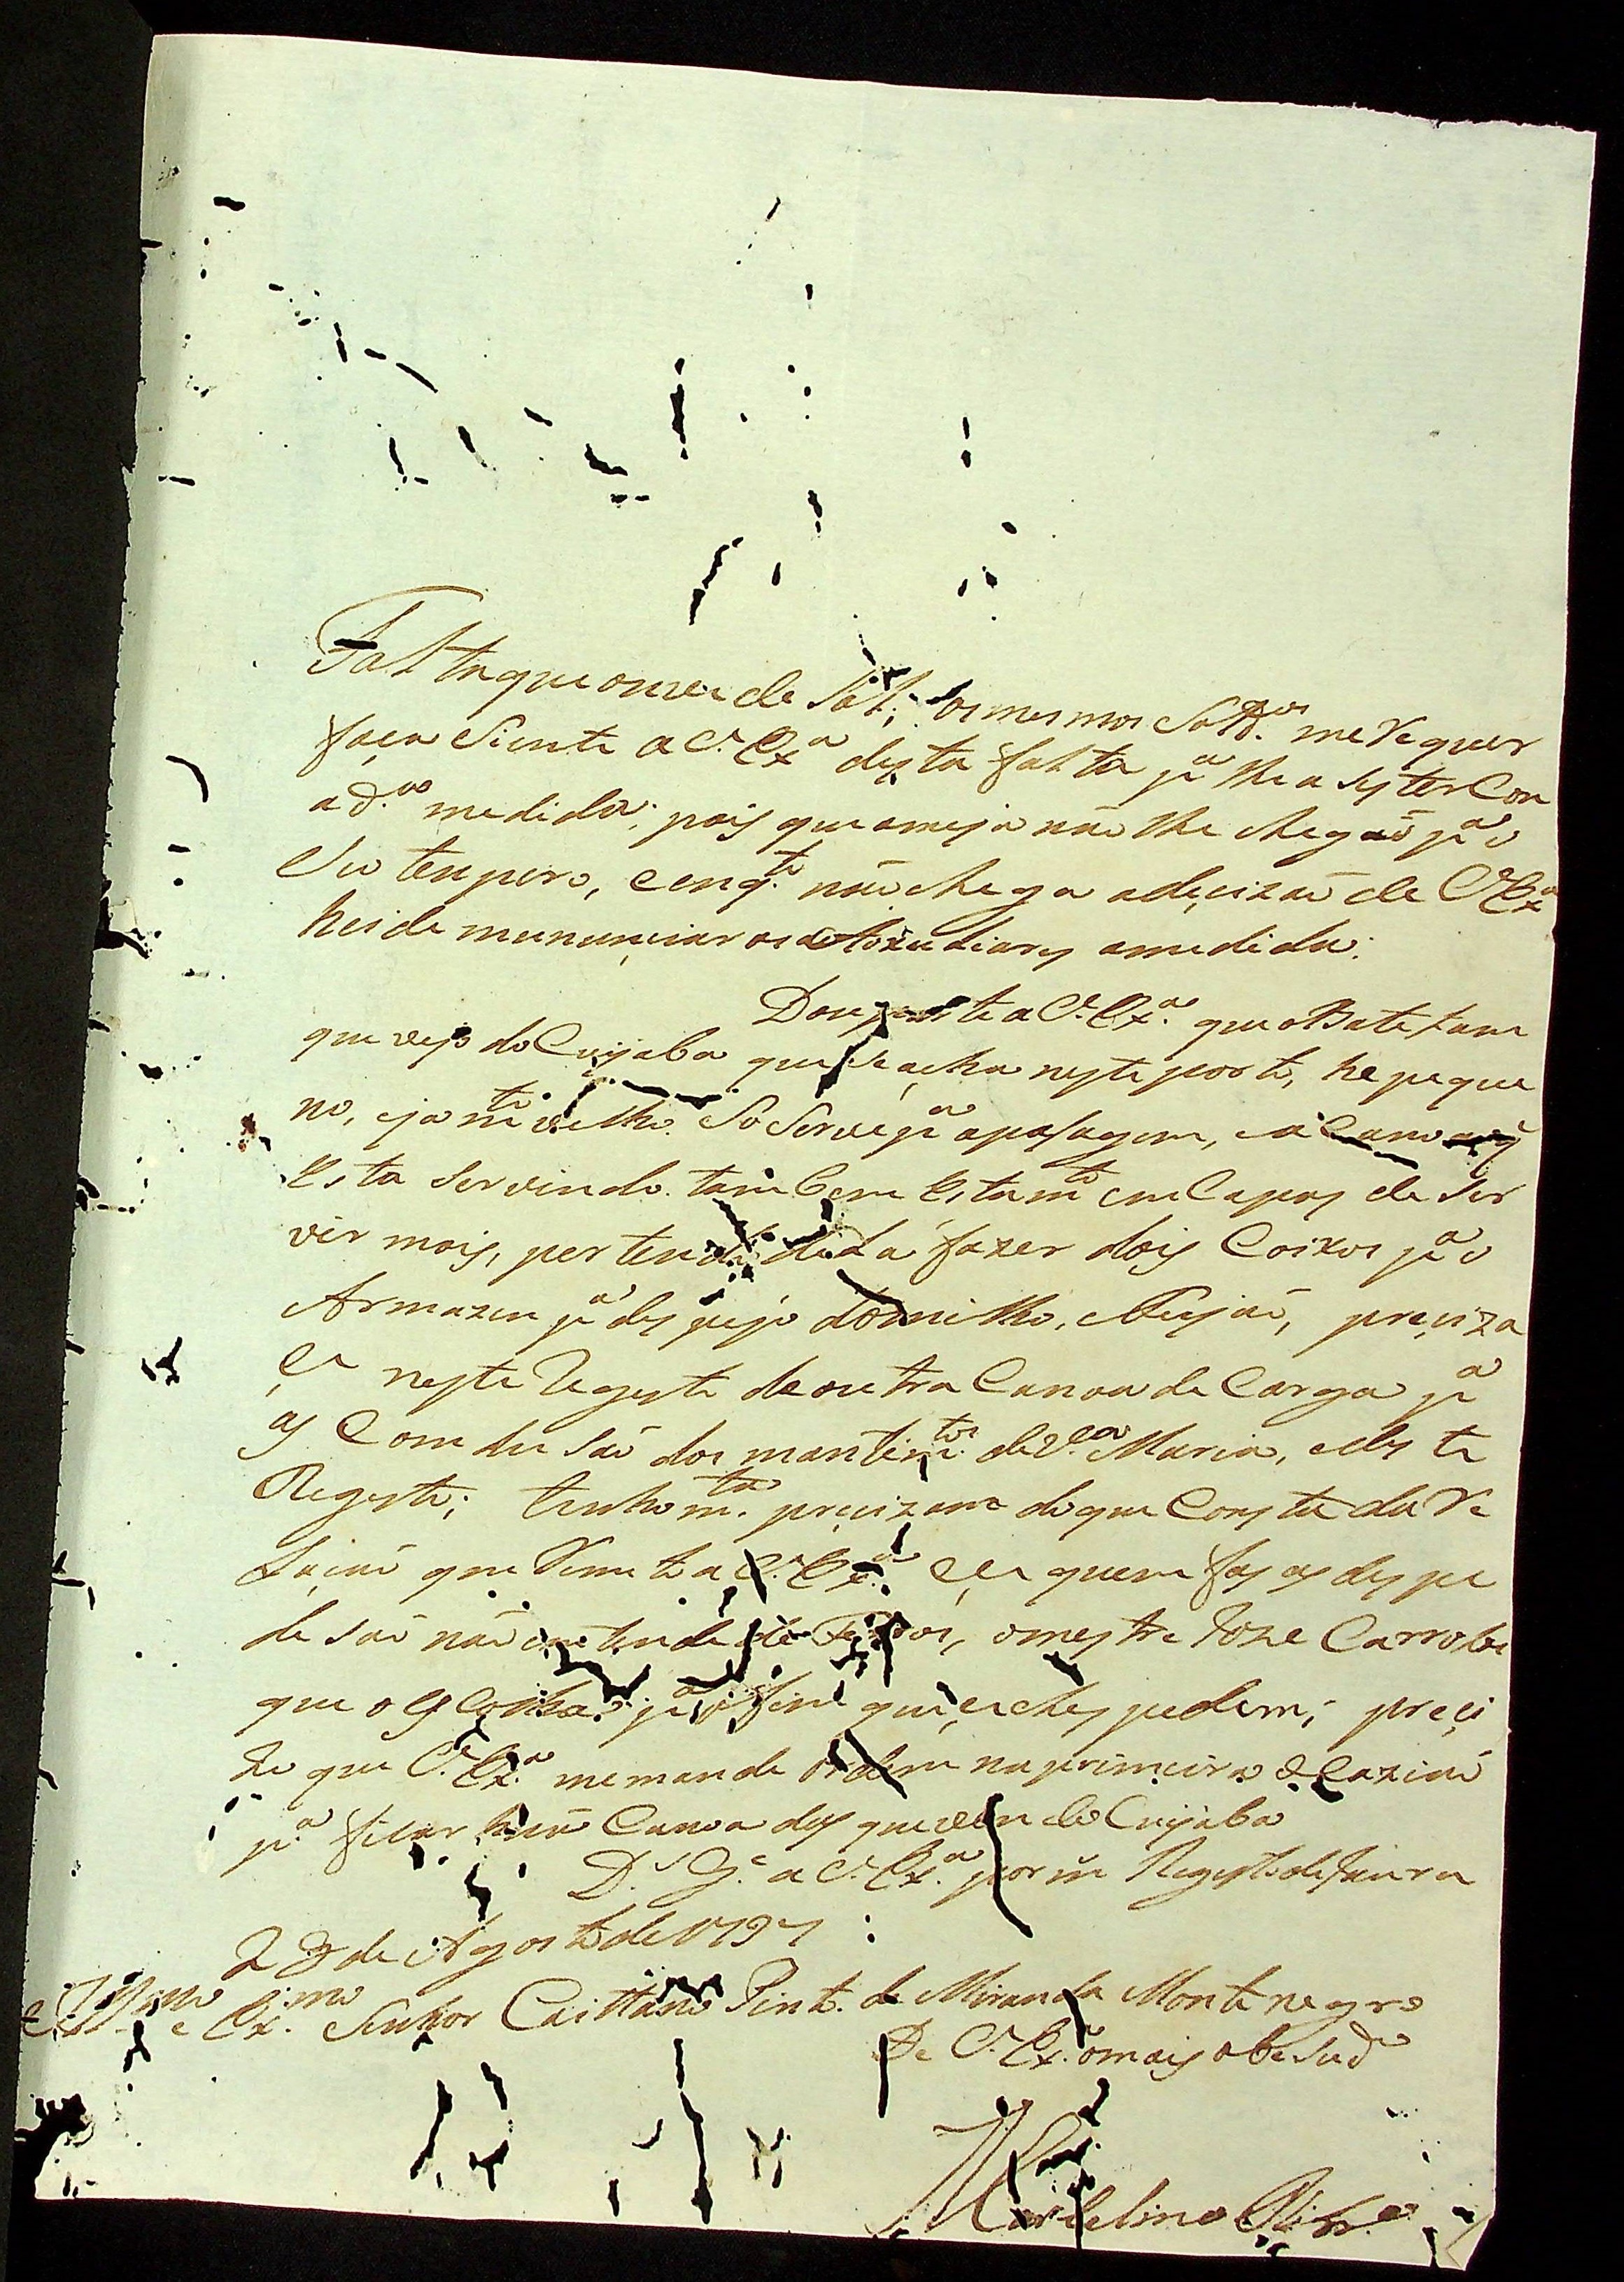 Falta que ouver de Sal; os mesmos Sold.os me Requer
faça Siente a V. Ex.a desta falta p.a lhe a sester Con
a d.a medida; pois que a meja não lhe chegão p.a o
Seu tenpero, e enq.to não chega a deçizão de V. Ex.a
hei de mununçiar os aSoxudiares a medida.
Dou parte a V. Ex.a que o Batelam
que veyo do Cuyaba que Se acha neste porto, he peque
no, e ja m.to velho. So Serve p.a a pasagem, e a Canoa
Esta Servindo. tambem Esta m.to em Capas de Ser
vir mais, pertendo della fazer dois Coixos p.a o
Armazen p.a despejo do milho, e Feijão, preçiza
çe neste Regesto de outra Canoa de Carga p.a
as Comdusão dos mantim.tos de V.a Maria, e deste
Regesto; tenho m.ta preçizam do que Consta da Re
laçião que Remeto a V. Ex.a e çe quem fas as despe
desão não entende de Ferros, o mestre Joze Carrolos
que os Conhaça p.a o fim que çe lhes pedem; preçi
zo que V. Ex.a me mande ordem na primeira Ocazião
p.a ficar huã Canoa das que ven do Cuyaba
D.s G.e a V. Ex.a por m Regesto do Jauru
28 de Agosto de 1797
Ill.mo e Ex.mo Senhor Caittano Pinto de Miranda Montenegro
De V. Ex.a o mais obe Sud.o
Marselino Ribr.o